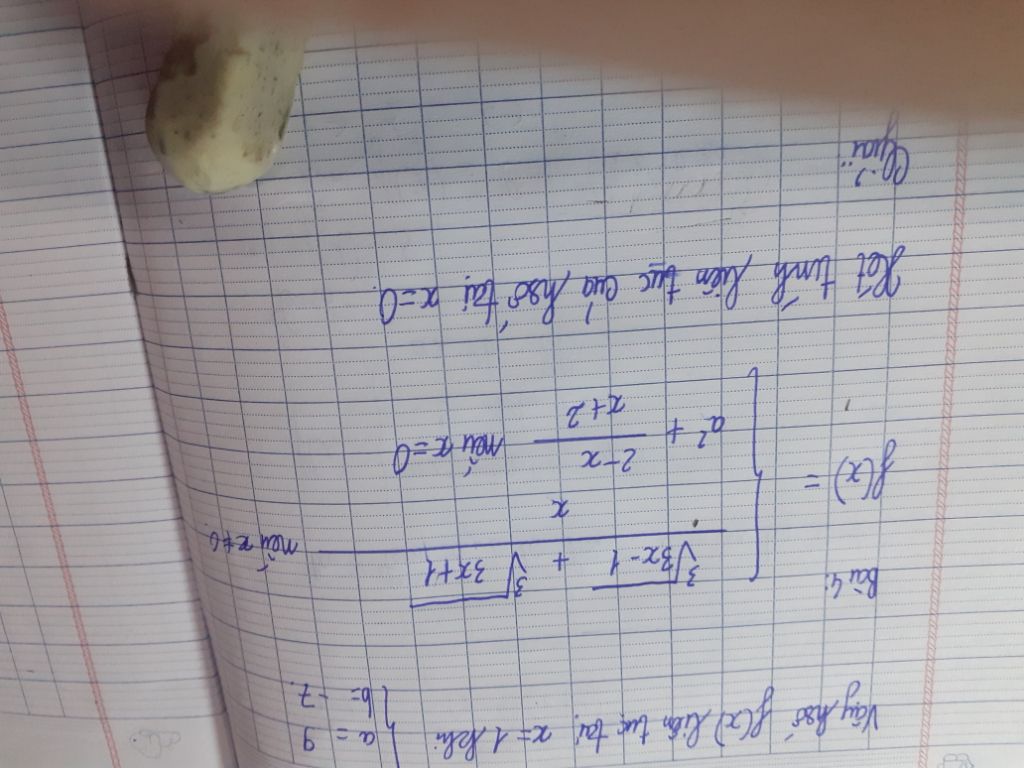 Vậy hsố f(x) liên tục tại x = 1 khi { a = 9
b = -7.
Bài 4:
f(x) = { (∛(3x-1) + ∛(3x+1)) / x nếu x ≠ 0
a² + (2-x) / (x+2) nếu x = 0
Xét tính liên tục của hsố tại x = 0.
Giải: